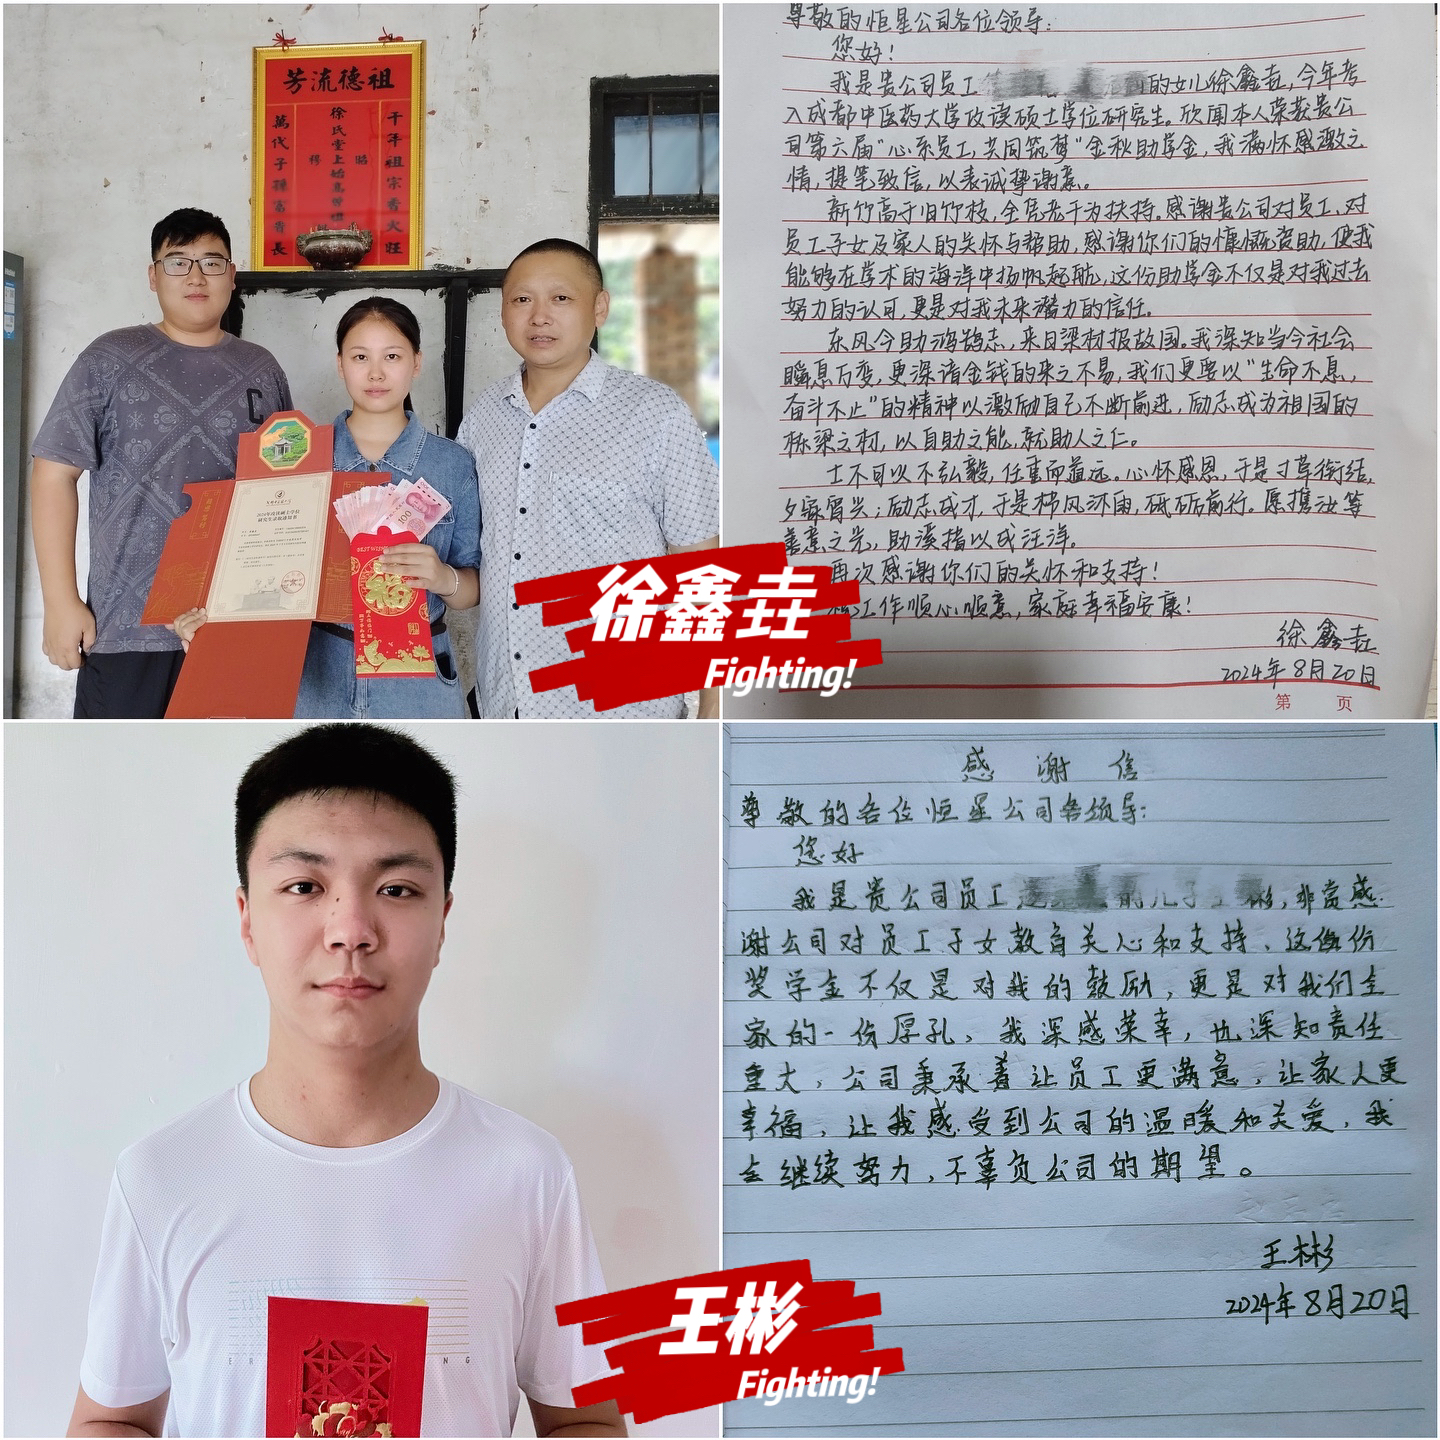 祖德流芳
千年祖宗香火旺
徐氏堂上始高曾祖
萬代子孫富貴長
2024年攻读硕士学位
研究生录取通知书
BEST WISHES
100
福
徐鑫垚
Fighting!
尊敬的恒星公司各位领导：
您好！
我是贵公司员工 的女儿徐鑫垚，今年考
入成都中医药大学攻读硕士学位研究生。欣闻本人荣获贵公
司第六届“心系员工，共同筑梦”金秋助学金，我满怀感激之
情，提笔致信，以表诚挚谢意。
新竹高于旧竹枝，全凭老干为扶持。感谢贵公司对员工、对
员工子女及家人的关怀与帮助，感谢你们的慷慨资助，使我
能够在学术的海洋中扬帆起航，这份助学金不仅是对我过去
努力的认可，更是对我未来潜力的信任。
东风今助鸿鹄志，来日梁材报故国。我深知当今社会
瞬息万变，更深谙金钱的来之不易，我们更要以“生命不息，
奋斗不止”的精神以激励自己不断前进，励志成为祖国的
栋梁之材，以自助之能，就助人之仁。
士不可以不弘毅，任重而道远。心怀感恩，于是寸草衔结，
夕寐宵兴；励志成才，于是栉风沐雨，砥砺前行。愿携汝等
善意之光，助溪揩以成汪洋。
再次感谢你们的关怀和支持！
祝工作顺心顺意，家庭幸福安康！
徐鑫垚
2024年8月20日
第 页
感谢信
尊敬的各位恒星公司各领导：
您好
我是贵公司员工 的儿子王彬，非常感
谢公司对员工子女教育关心和支持、这份
奖学金不仅是对我的鼓励，更是对我们全
家的一份厚礼，我深感荣幸，也深知责任
重大，公司秉承着让员工更满意，让家人更
幸福，让我感受到公司的温暖和关爱，我
会继续努力，不辜负公司的期望。
王彬
2024年8月20日
王彬
Fighting!